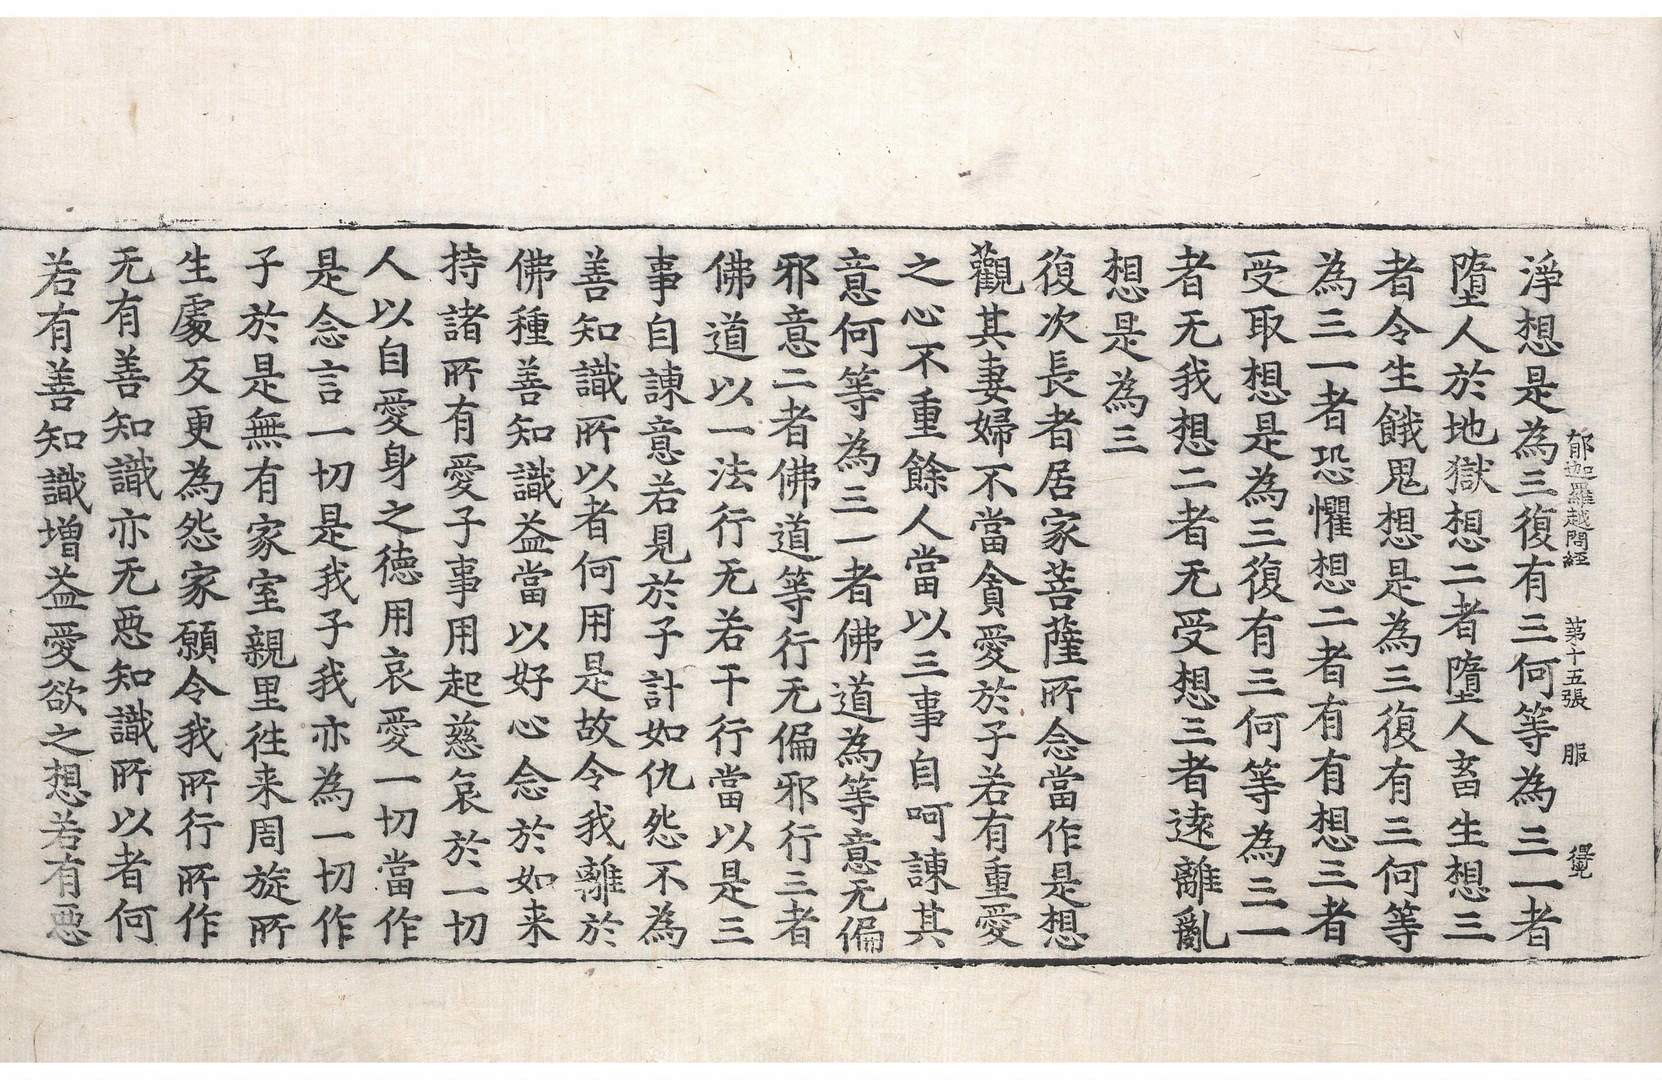 郁迦羅越問經 第十五張 服 得宂
淨想是為三復有三何等為三一者
墮人於地獄想二者墮人畜生想三
者令生餓鬼想是為三復有三何等
為三一者恐懼想二者有有想三者
受取想是為三復有三何等為三一
者无我想二者无受想三者遠離亂
想是為三
復次長者居家菩薩所念當作是想
觀其妻婦不當貪愛於子若有重愛
之心不重餘人當以三事自呵諫其
意何等為三一者佛道為等意无偏
邪意二者佛道等行无偏邪行三者
佛道以一法行无若干行當以是三
事自諫意若見於子計如仇怨不為
善知識所以者何用是故令我離於
佛種善知識益當以好心念於如来
持諸所有愛子事用起慈哀於一切
人以自愛身之德用哀愛一切當作
是念言一切是我子我亦為一切作
子於是無有家室親里往来周旋所
生處反更為怨家願令我所行所作
无有善知識亦无惡知識所以者何
若有善知識增益愛欲之想若有惡